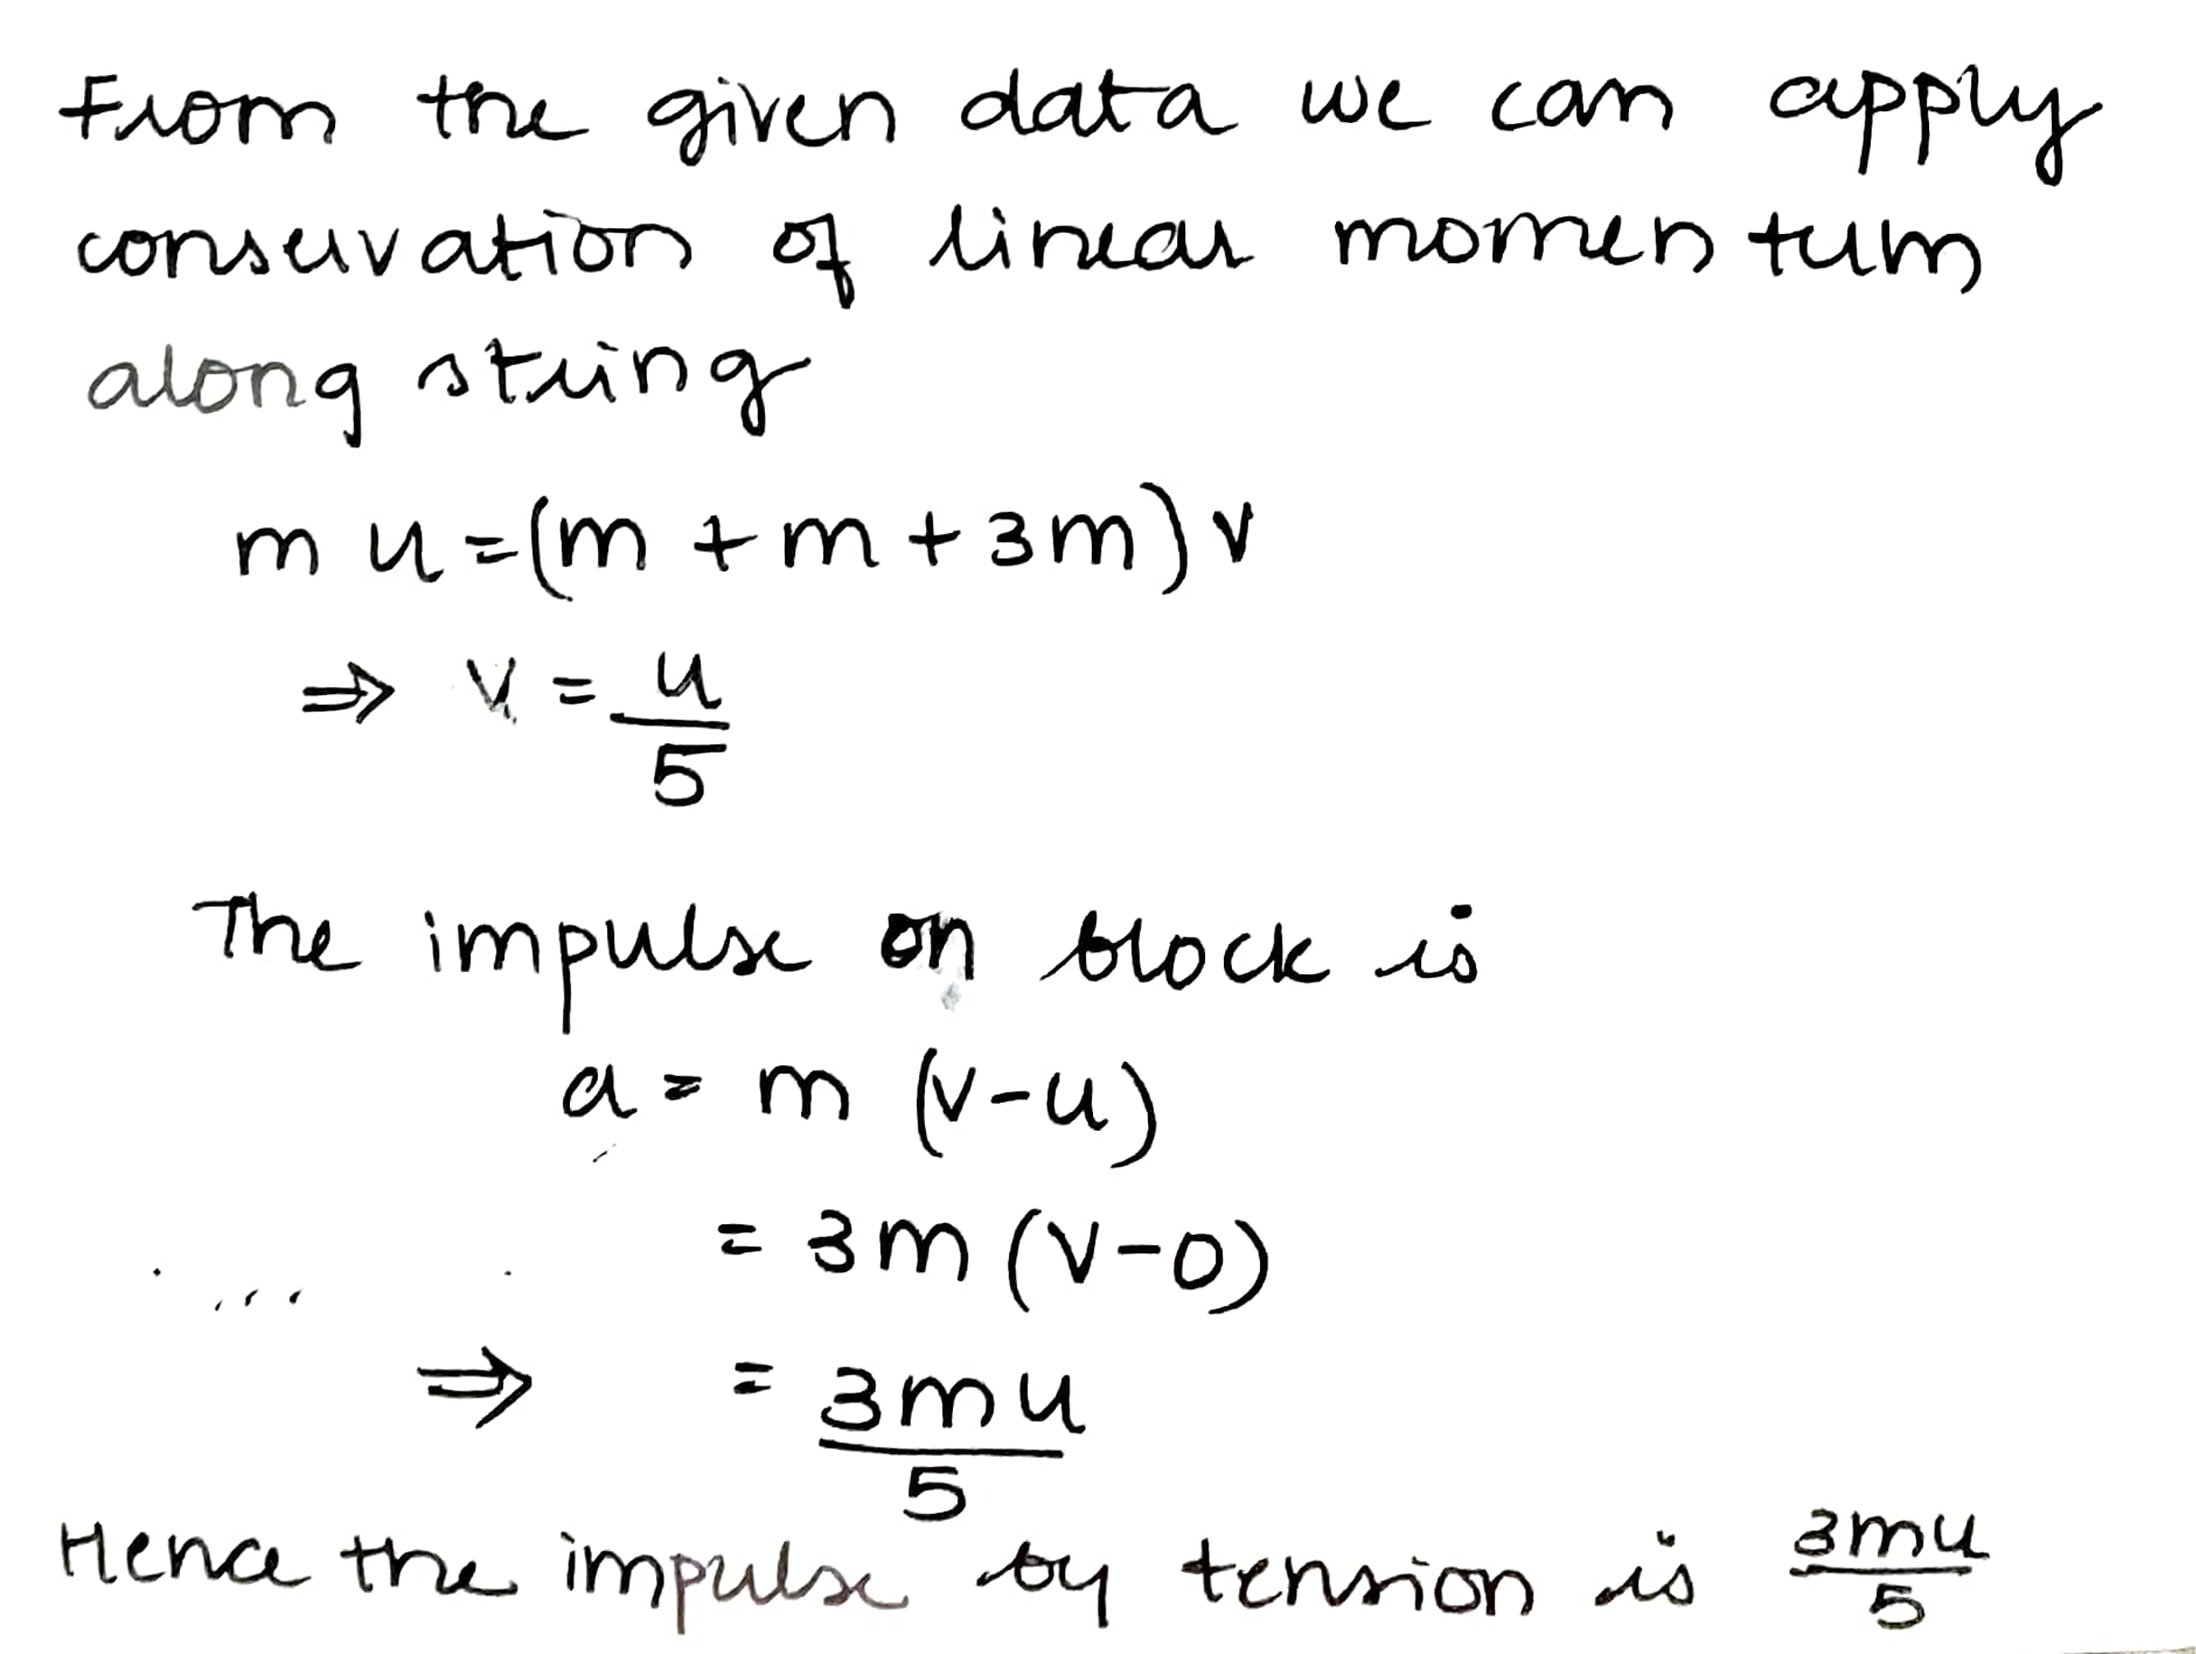 From the given data we can apply
conservation of linear momentum
along string
m u = (m + m + 3m) v
⇒ v = u/5
The impulse on block is
a = m (v-u)
= 3m (v-0)
⇒ = 3mu/5
Hence the impulse by tension is 3mu/5